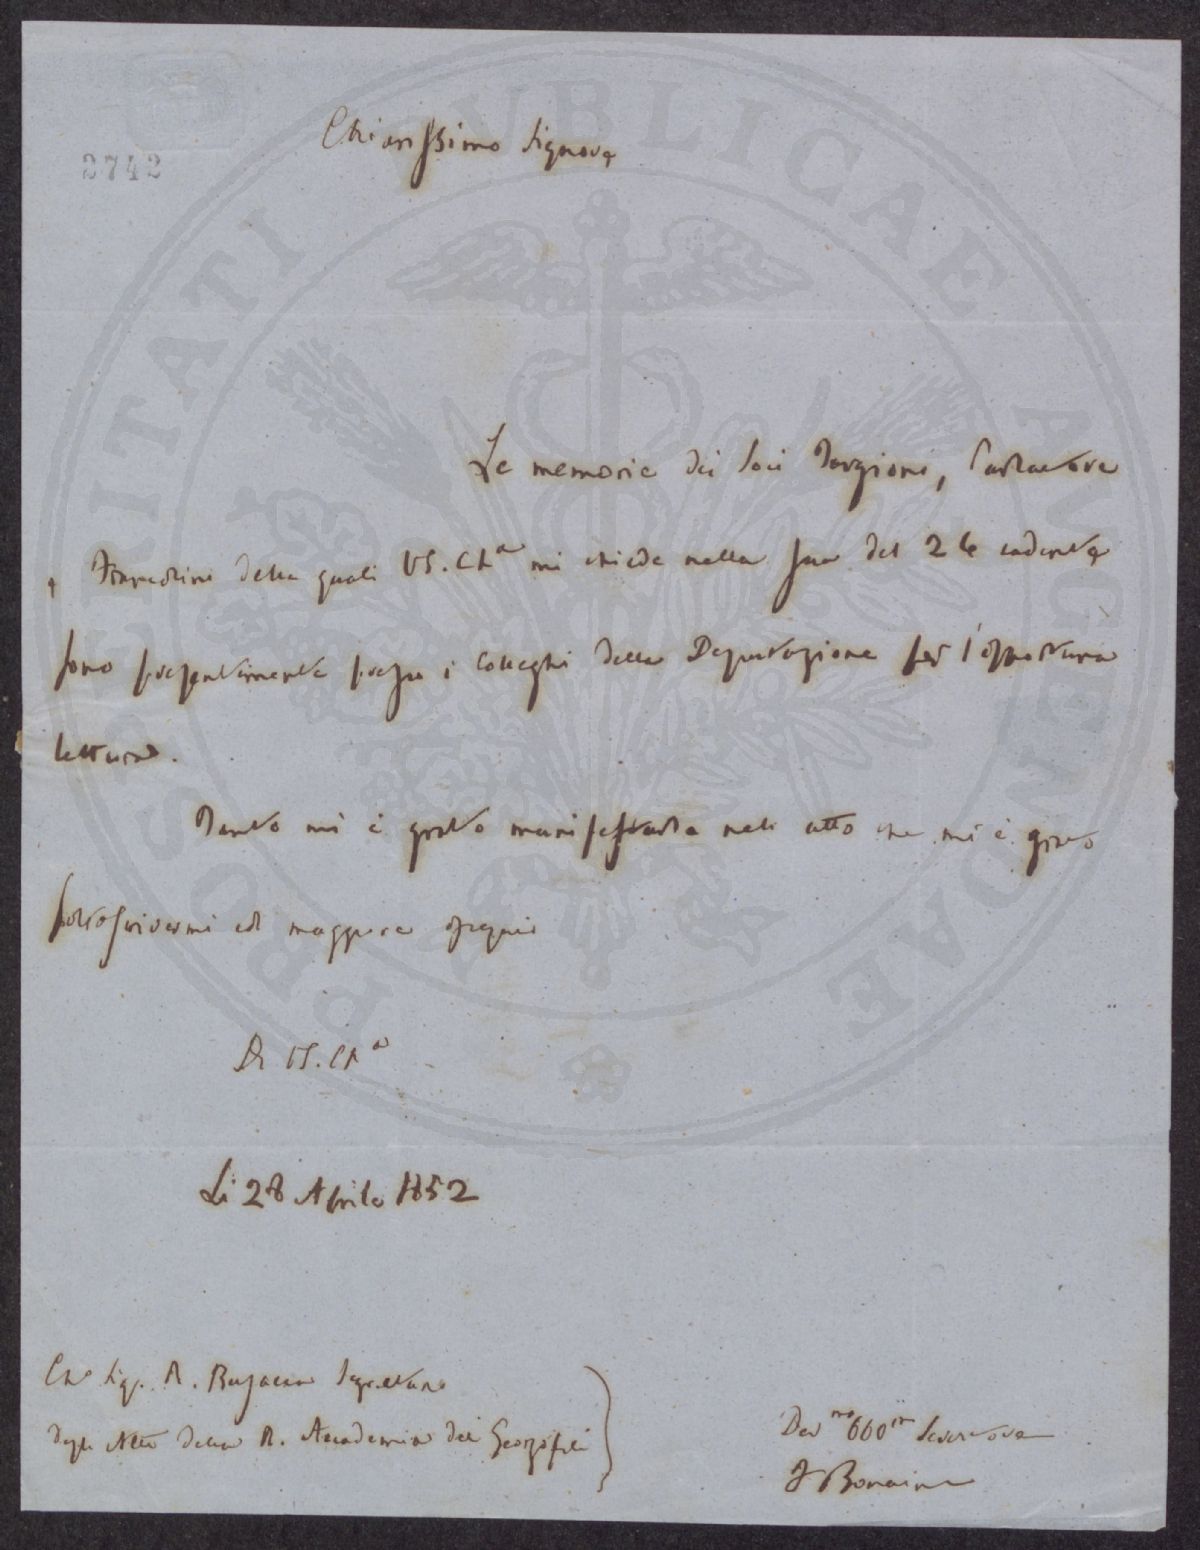 2742
Chiarissimo Signore
Le memorie dei Soci Targioni,
delle quali VS. Ch.a mi chiede nella sua del 26 cadente
sono presentemente presso i Colleghi della Deputazione per l'opportuna
lettura.
Tanto mi è grato manifestarle nell'atto che mi è grato
sottoscrivermi col maggiore ossequio
Di VS. Ch.a
Li 28 Aprile 1852
Ch.o Sig. R. Busacca Segretario
degli Atti della R. Accademia dei Georgofili
Dev.mo Obb.mo Servitore
F Bonaini
PROSPERITATI PUBLICAE AUGENDAE